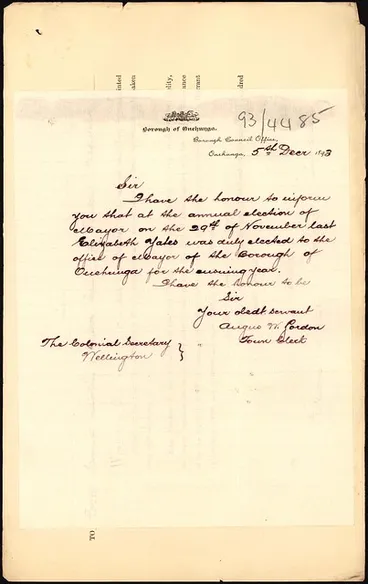 inted
aken
lity,
ance
rrant
dred
93/4485
Borough of Onehunga.
Borough Council Office,
Onehunga, 5th Decr 1893
Sir
I have the honour to inform
you that at the annual election of
Mayor on the 29th of November last
Elizabeth Yates was duly elected to the
office of Mayor of the Borough of
Onehunga for the ensuing year.
I have the honour to be
Sir
Your obedt servant
Angus W. Gordon
Town Clerk
The Colonial Secretary
Wellington
TO